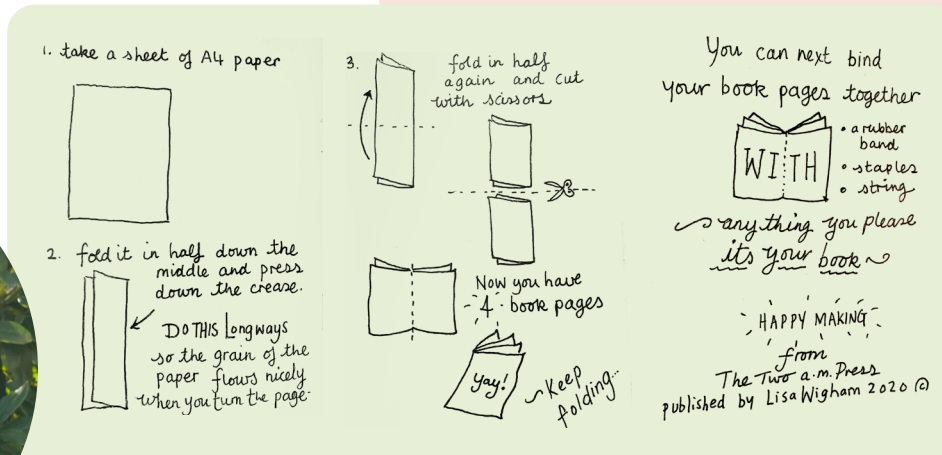 1. take a sheet of A4 paper
2. fold it in half down the
middle and press
down the crease.
DO THIS Longways
so the grain of the
paper flows nicely
when you turn the page
3.
fold in half
again and cut
with scissors
Now you have
4 book pages
Yay!
Keep
folding...
You can next bind
your book pages together
WITH
• a rubber
band
• staples
• string
anything you please
its your book
HAPPY MAKING
from
The Two a.m. Press
published by Lisa Wigham 2020 ©